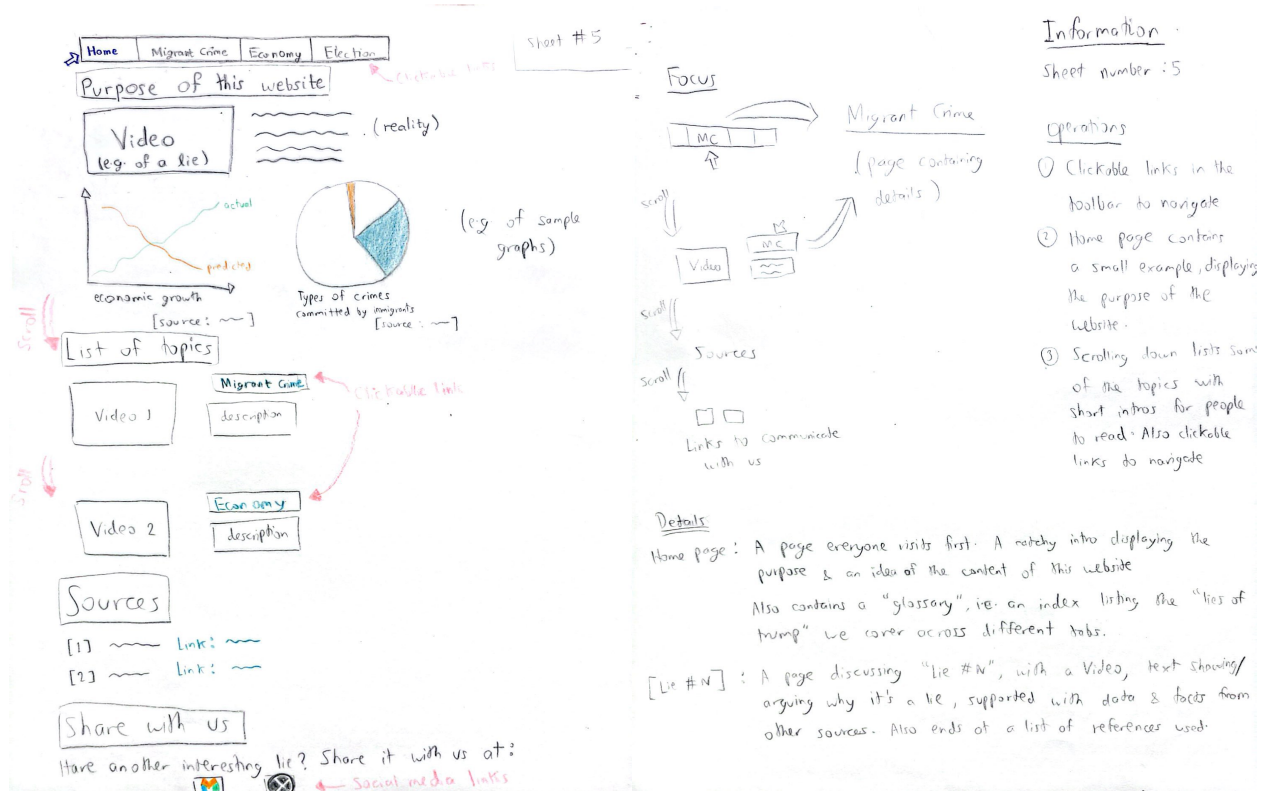 Home Migrant Crime Economy Election
Sheet #5
Clickable links
Purpose of this website
Video
(eg. of a lie)
(reality)
actual
predicted
economic growth
[source: ~~]
Types of crimes
committed by immigrants
[source: ~~]
(eg of sample
graphs)
Scroll
List of topics
Video 1
Migrant Crime
description
Clickable link
Scroll
Video 2
Economy
description
Sources
[1] Link:
[2] Link:
Share with us
Have another interesting lie? Share it with us at:
Social media links
Focus
MC
Migrant Crime
(page containing
details)
scroll
Video
MC
scroll
Sources
scroll
Links to communicate
with us
Information
Sheet number : 5
Operations
① Clickable links in the
toolbar to navigate
② Home page contains
a small example, displaying
the purpose of the
website.
③ Scrolling down lists some
of the topics with
short intros for people
to read. Also clickable
links to navigate
Details
Home page : A page everyone visits first. A catchy intro displaying the
purpose & an idea of the content of this website
Also contains a "glossary", i.e. an index listing the "lies of
trump" we cover across different tabs.
[Lie #N] : A page discussing "lie #N", with a Video, text showing/
arguing why it's a lie, supported with data & facts from
other sources. Also ends at a list of references used.